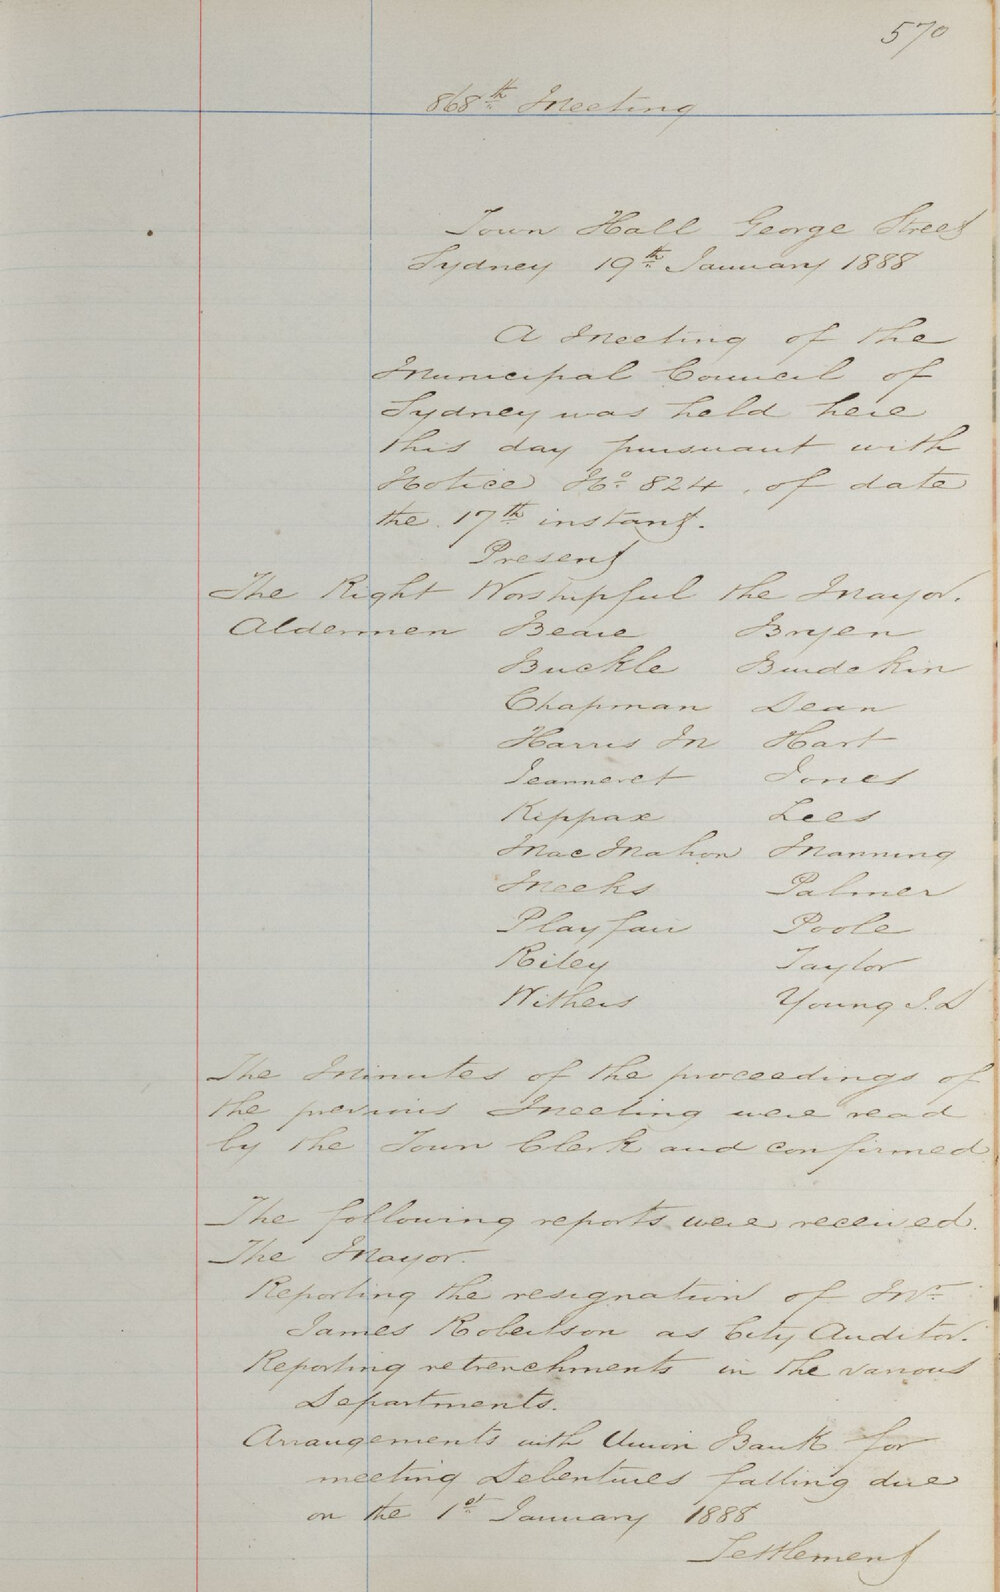 570
868th Meeting
Town Hall George Street
Sydney 19th January 1888
A Meeting of the
Municipal Council of
Sydney was held here
this day pursuant with
Notice No. 824, of date
the 17th instant.
Present
The Right Worshipful the Mayor.
Aldermen Beare Bryen
Buckle Burdekin
Chapman Dean
Harris Jn Hart
Jeanneret Jones
Kippax Lees
MacMahon Manning
Meeks Palmer
Playfair Poole
Riley Taylor
Withers Young J.D
The Minutes of the proceedings of
the previous Meeting were read
by the Town Clerk and confirmed
The following reports were received.
The Mayor.
Reporting the resignation of Mr.
James Robertson as City Auditor.
Reporting retrenchments in the various
Departments.
Arrangements with Union Bank for
meeting Debentures falling due
on the 1st January 1888
Settlement